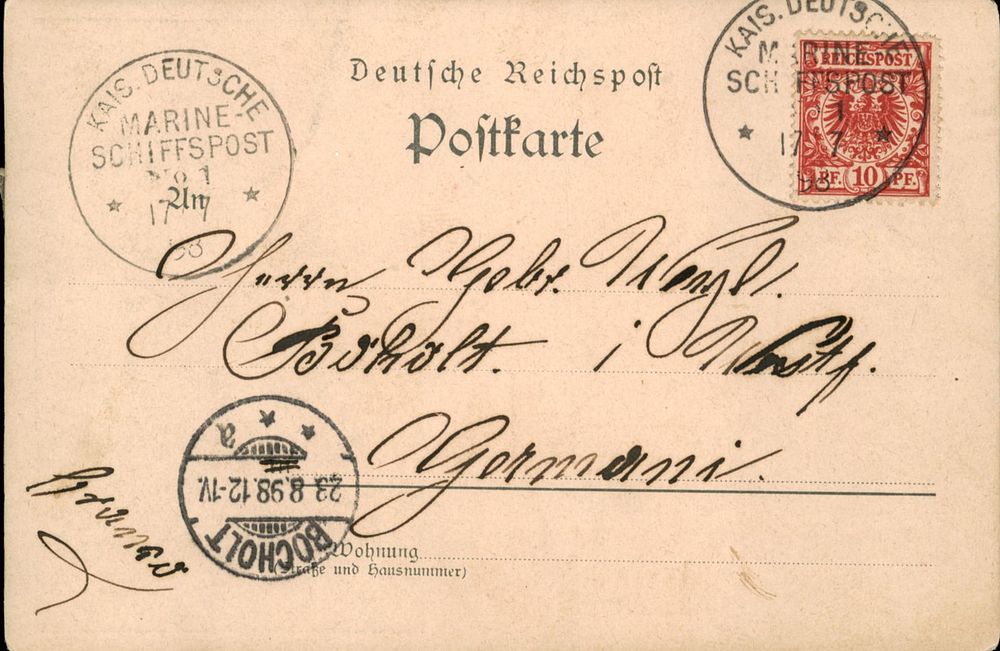 KAIS. DEUTSCHE
MARINE-
SCHIFFSPOST
No 1
17 7
98
Deutsche Reichspost
Postkarte
KAIS. DEUTSCHE
MARINE-
SCHIFFSPOST
1
17 7
98
REICHSPOST
PF. 10 PF.
An
Herrn Gebr. Weyl.
Bocholt. i Westf.
Germani.
a
23.8.98.12-1V.
BOCHOLT
Wohnung
(Straße und Hausnummer)